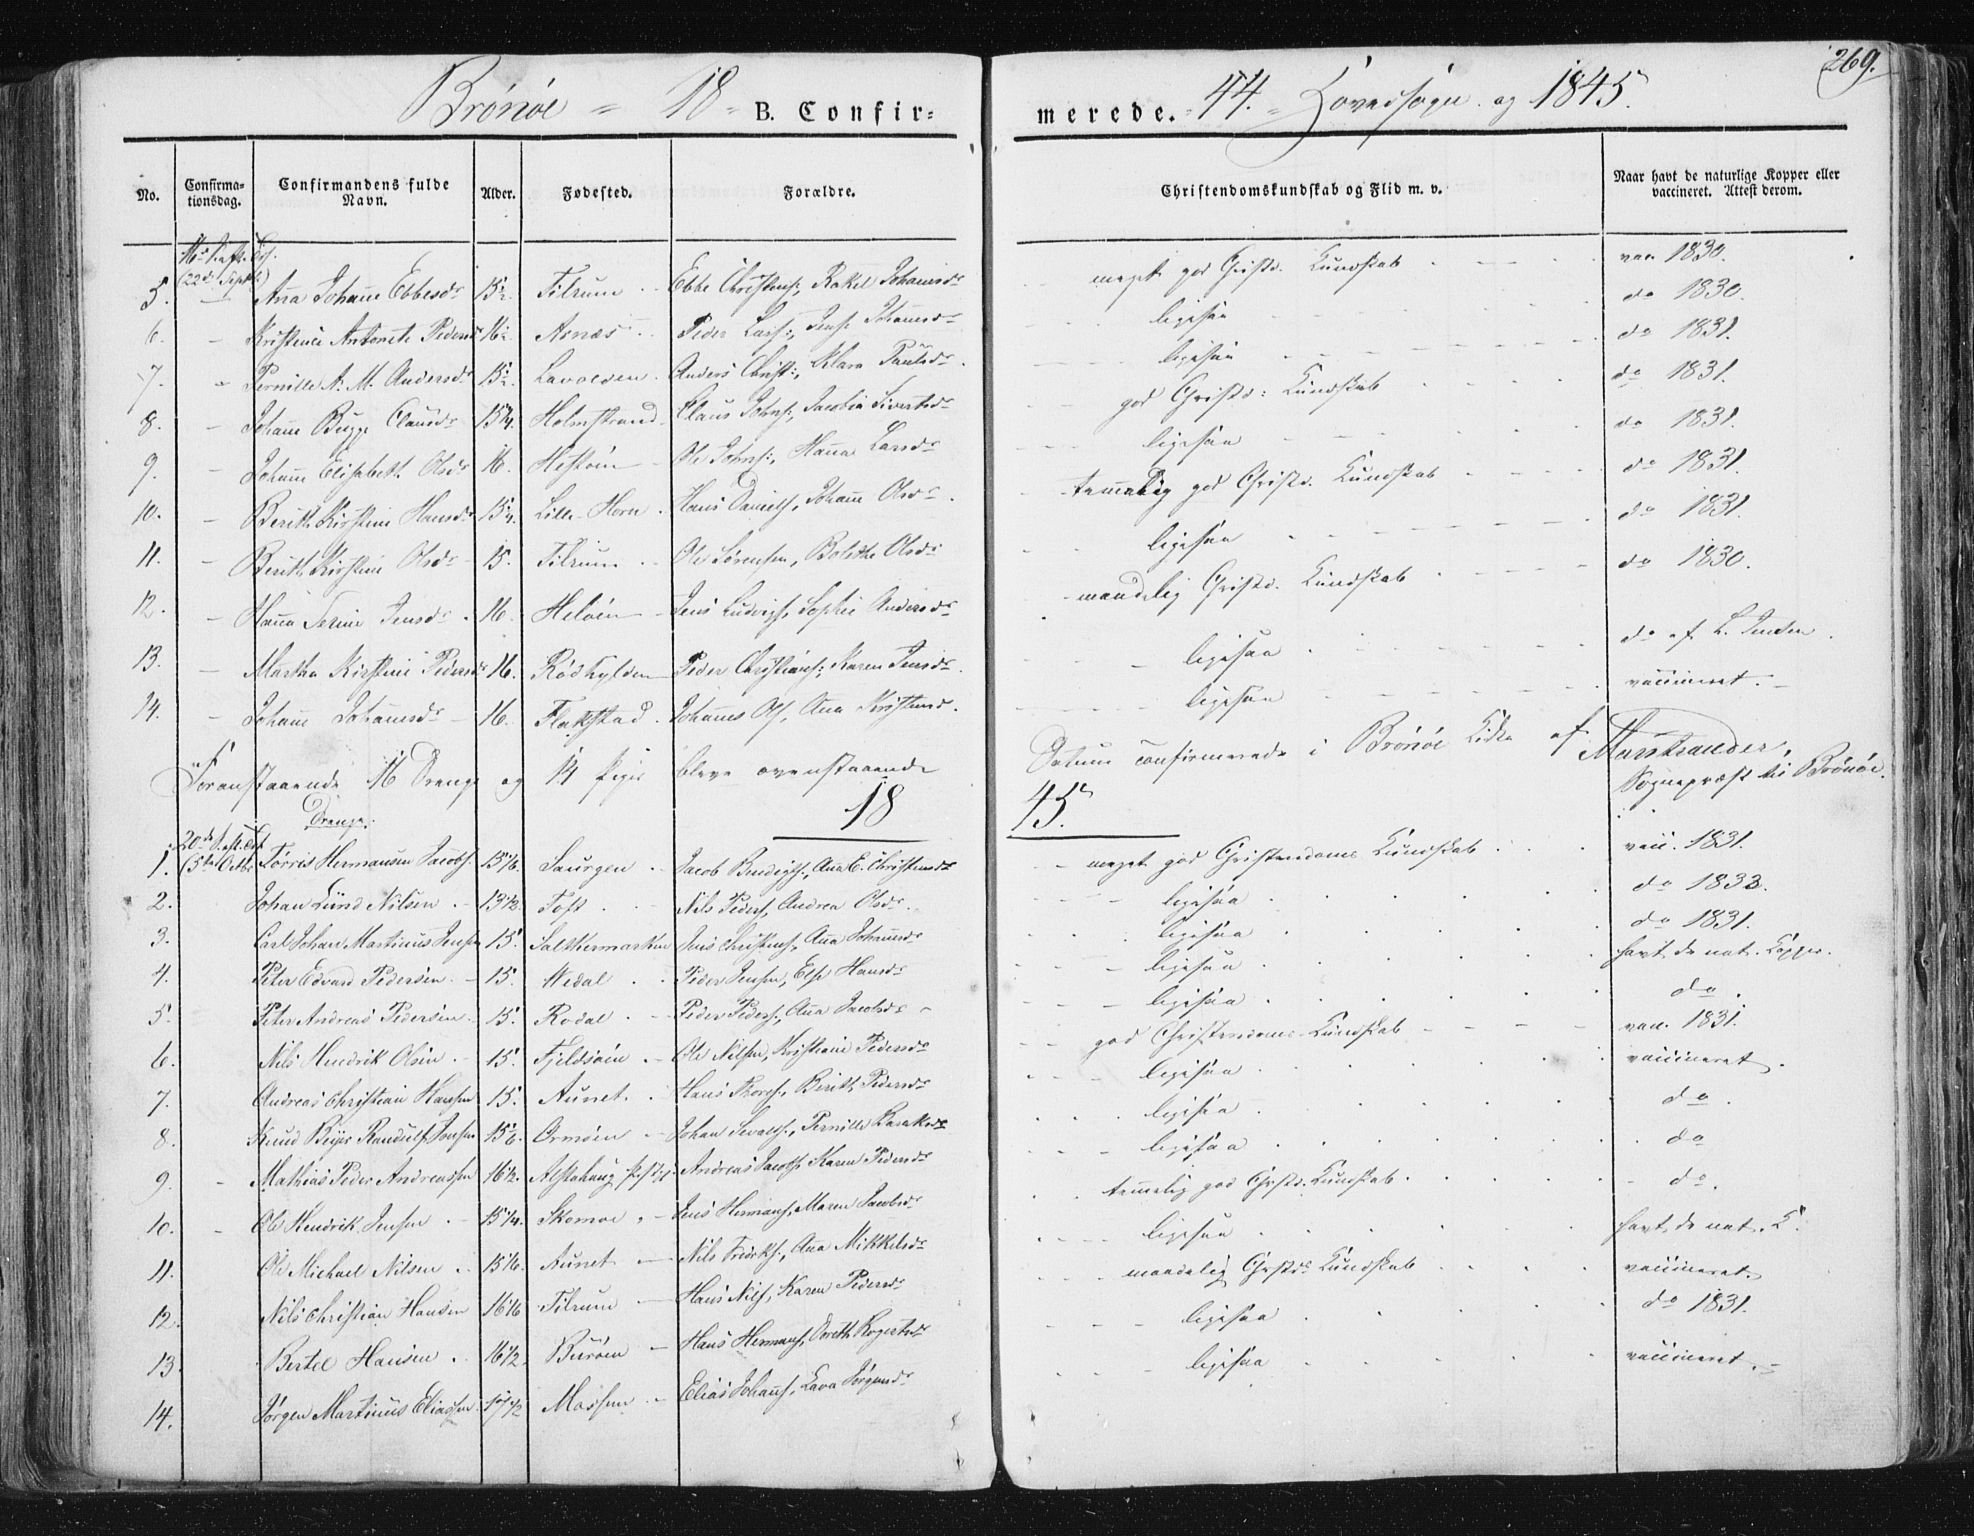 269.
Brönöe = 18 = B. Confir=merede. = 44. = Hovedsogn. og 1845.
No. Confirmationsdag. Confirmandens fulde Navn. Alder. Fødested. Forældre. Christendomskundskab og Flid m. v. Naar havt de naturlige Kopper eller vaccineret. Attest derom.
(22de Septb.)
5. Ana Johane Ebbesdr 15½. Tilrum Ebbe Christens:, Rakel Johanisdr meget god Christd. Kundskab vac. 1830.
6. Kristence Antonete Pedersdr 16½ Arnæs Peder Lars:, Johansdr ligesaa do 1830.
7. Pernille A. M. Andersdr 15½. Lavolden Anders Christ:, Klara Paulsdr ligesaa do 1831.
8. Johane Bugge Clausdr 15¼. Holmstrand Claus Johns:, Jacobia Sivertsdr god Christd: Kundskab do 1831.
9. Johane Elisabeth Olsdr 16. Hestöen Ole Johns:, Hana Larsdr ligesaa do 1831.
10. Berith Kirstine Hansdr 15¼. Lille-Horn Hans Daniels, Johane Olsdr temmelig god Christd. Kundskab do 1831.
11. Berith Kirstine Olsdr 15. Tilrum Ole Sörensen, Bolethe Olsdr ligesaa do 1831.
12. Hana Serine Jensdr 16. Helöen Jens Ludvigs, Sophie Andersdr maadelig Christd. Kundskab do 1830.
13. Martha Kirstine Pedersdr 16. Rödhylden Peder Christians:, Karen Jensdr ligesaa do af L. Jensen.
14. Johane Johansdr 16. Flakstad Johanes Ols, Ana Kristensd. ligesaa vaccineret.
Foranstaaende 16 Drenge og 14 Piger bleve ovenstaaende Datum confirmerede i Brönöe Kirke af Marstrander, Sognepræst til Brönöe.
Drenge. 18 45.
20de S. eft. Trt.
1. (5te Octbr Törris Hermansen Jacobs. 15 1/6. Saurgen Jacob Bendigts., Ana E. Christensdr meget god Christendoms Kundskab vacc. 1831.
2. Johan Lund Nilsen 13½ Toft Nils Peders, Andrea Olsdr. ligesaa do 1833.
3. Carl Johan Martinus Jensen 15. Saltkermarken Jens Christens, Ana Johansdr ligesaa do 1831.
4. Peter Edvard Pedersen 15. Wedal Peder Jensen, Else Hansdr ligesaa havt de nat. Kopper.
5. Peter Andreas Pedersen 15. Rodal Peder Peders., Ana Jacobsdr ligesaa do.
6. Nils Hendrik Olsen 15. Fjeldsöen Ole Nilsen, Kristiane Pedersdr god Christendoms-Kundskab vacc. 1831.
7. Andreas Christian Hansen 15. Aunet. Hans Thores., Berith Pedersdr ligesaa vaccineret.
8. Knud Beijer Randulf Johnsen 15 1/6. Ormöen Johan Sevalds., Pernille Barakdr ligesaa do.
9. Mathias Peder Andreassen 16½. Alstahaug Andreas Jacobs, Karen Pedersdr ligesaa do
10. Ole Hendrik Jensen 15¼. Skomoe Jens Hermans, Maren Jacobsdr temmelig god Christd. Kundskab do.
11. Ole Michael Nilsen 15 1/6. Aunet Nils Fredriks., Ana Mikkelsdr ligesaa havt de nat. K.
12. Nils Christian Hansen 16 1/6 Tilrum Hans Nils, Karen Pedersdr maadelig Christds Kundskab vaccineret.
13. Bertel Hansen 16½ Buröen Hans Hermans, Doreth Rogertsdr ligesaa do 1831.
14. Jörgen Martinus Eliassen 17½ Mossem Elias Johans, Lava Jörgensdr ligesaa vaccineret.